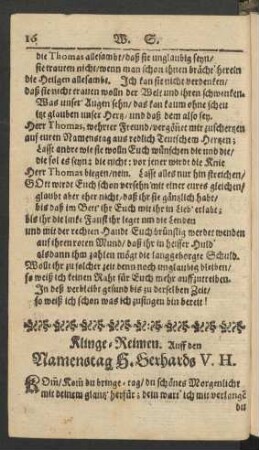 16 W. S.
die Thomas allesambt/ daß sie unglaubig seyn/
sie trauten nicht/ wenn man schon ihnen brächt' herein
die Heilgen allesambt. Ich kan sie nicht verdenken/
daß sie nicht trauen wolln der Welt und ihren schwenken.
Was unser Augen sehn/ das kan kaum ohne scheu
itz glauben unser Hertz/ und daß dem also sey.
Herr Thomas, wehrter Freund/ vergönnet mir zuschertzen
auf euren Namenstag aus redlich Teutschem Hertzen;
Lasst andre wie sie wolln Euch wünschen die und die/
die sol es seyn; die nicht; vor jener wird die Knie
Herr Thomas biegen/ nein. Lasst alles nur hin streichen/
GOtt wird Euch schon versehn/ mit einer eures gleichen/
glaubt aber eher nicht/ daß ihr sie gäntzlich habt/
bis daß im Bett' ihr Euch mit ihr in Lieb' erlabt;
bis ihr die linke Faust ihr leget um die Lenden
und mit der rechten Hand Euch brünstig werdet wenden
auf ihren roten Mund/ daß ihr in heisser Huld'
alsdann ihm zahlen mögt die langgeborgte Schuld.
Wollt ihr zu solcher zeit denn noch unglaubig bleiben/
so weiß ich keinen Raht für Euch mehr auffzutreiben.
In deß verbleibt gesund bis zu derselben Zeit/
so weiß ich schon was ich zusingen bin bereit!
Klinge-Reimen. Auff den
Namenstag H. Gerhards V. H.
KOm̃/ Kom̃ du bringe-tag/ du schönes Morgenlicht
mit deinem glantz' herfür; dein wart' ich mit verlangẽ
du